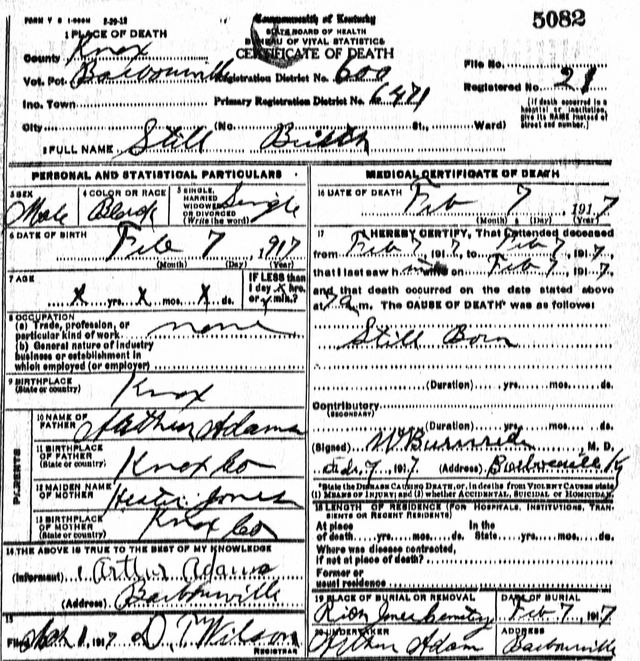 FORM V S 1-500M 2-20-12
Commonwealth of Kentucky
STATE BOARD OF HEALTH
BUREAU OF VITAL STATISTICS
CERTIFICATE OF DEATH
5082
1 PLACE OF DEATH
County Knox
Vot. Pct. Barbourville Registration District No. 600
File No.
Inc. Town Primary Registration District No. 6471
Registered No. 21
(If death occurred in a hospital or institution, give its NAME instead of street and number.)
City (No. St., Ward)
2 FULL NAME Still Birth
PERSONAL AND STATISTICAL PARTICULARS
3 SEX Male
4 COLOR OR RACE Black
5 SINGLE, MARRIED WIDOWED OR DIVORCED (Write the word) Single
6 DATE OF BIRTH Feb 7 1917
(Month) (Day) (Year)
7 AGE x yrs. x mos. x ds.
IF LESS than 1 day x hrs. or x min.?
8 OCCUPATION
(a) Trade, profession, or particular kind of work none
(b) General nature of industry business or establishment in which employed (or employer)
9 BIRTHPLACE (State or country) Knox
PARENTS
10 NAME OF FATHER Arthur Adams
11 BIRTHPLACE OF FATHER (State or country) Knox Co
12 MAIDEN NAME OF MOTHER Hester Jones
13 BIRTHPLACE OF MOTHER (State or country) Knox Co
14 THE ABOVE IS TRUE TO THE BEST OF MY KNOWLEDGE
(Informant) Arthur Adams
(Address) Barbourville
15
Filed 1917 D. T. Wilson
REGISTRAR
MEDICAL CERTIFICATE OF DEATH
16 DATE OF DEATH Feb 7 1917
(Month) (Day) (Year)
17 I HEREBY CERTIFY, That I attended deceased
from Feb 7 1917, to Feb 7, 1917,
that I last saw h alive on Feb 7, 1917,
and that death occurred on the date stated above
at 7 a m. The CAUSE OF DEATH* was as follows:
Still Born
(Duration) yrs. mos. ds.
Contributory
(SECONDARY)
(Duration) yrs. mos. ds.
(Signed) W Burnside M. D.
7 1917 (Address) Barbourville Ky
*State the DISEASE CAUSING DEATH, or, in deaths from VIOLENT CAUSES state (1) MEANS OF INJURY; and (2) whether ACCIDENTAL, SUICIDAL or HOMICIDAL.
18 LENGTH OF RESIDENCE (FOR HOSPITALS, INSTITUTIONS, TRANSIENTS OR RECENT RESIDENTS)
At place of death yrs. mos. ds. In the State yrs. mos. ds.
Where was disease contracted, if not at place of death?
Former or usual residence
19 PLACE OF BURIAL OR REMOVAL Cemetery
DATE OF BURIAL Feb 7, 1917
20 UNDERTAKER Arthur Adam
ADDRESS Barbourville